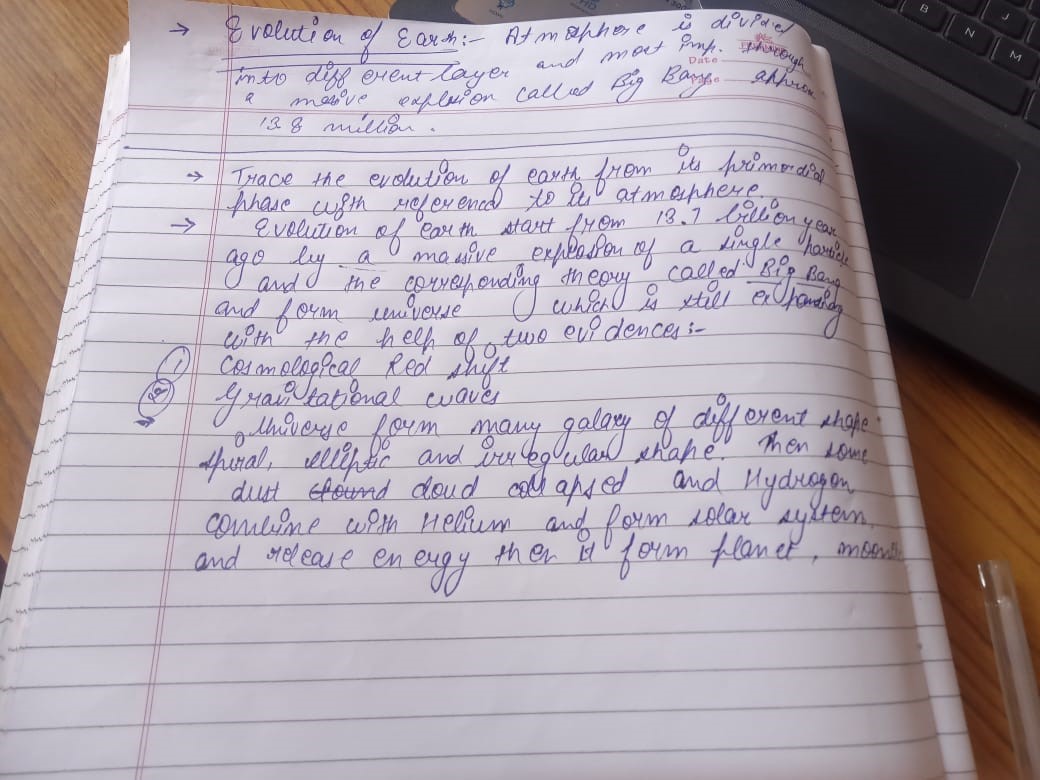 → Evolution of Earth:- Atmosphere is divided
into different layer and most imp. through
Date
a massive explsion called Big Bang approx
13.8 million.
→ Trace the evolution of earth from its primordial
phase with reference to its atmosphere.
→ Evolution of earth start from 13.7 billion year
ago by a massive explosion of a single particle
and the corresponding theory called Big Bang
and form universe which is still expanding
with the help of two evidences:-
① Cosmological Red shift
② Gravitational waves
→ Universe form many galaxy of different shape
spiral, elliptic and irregular shape. Then some
dust cloud collapsed and Hydrogen
combine with Helium and form solar system
and release energy then it form planet, moon
B N J M